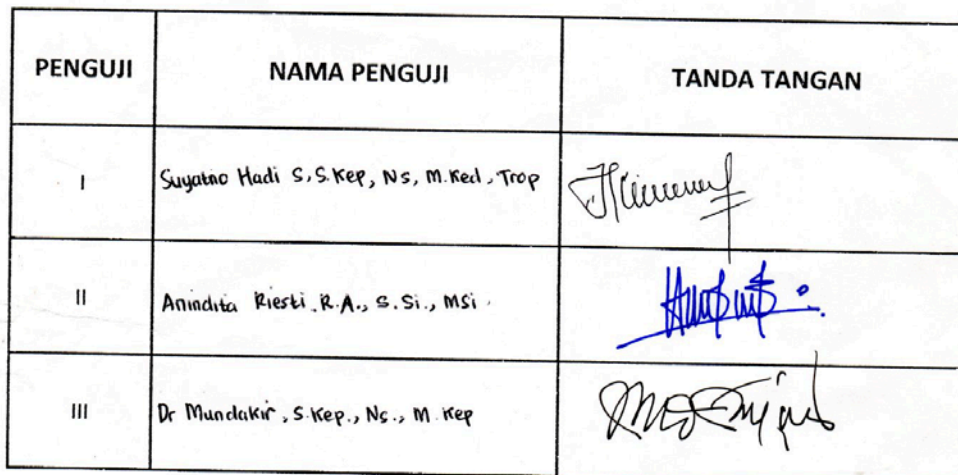 PENGUJI NAMA PENGUJI TANDA TANGAN
I Suyatno Hadi S, S.Kep, Ns, M.Ked, Trop
II Anindita Riesti.R.A., S.Si., MSi.
III Dr Mundakir, S.Kep., Ns., M.Kep